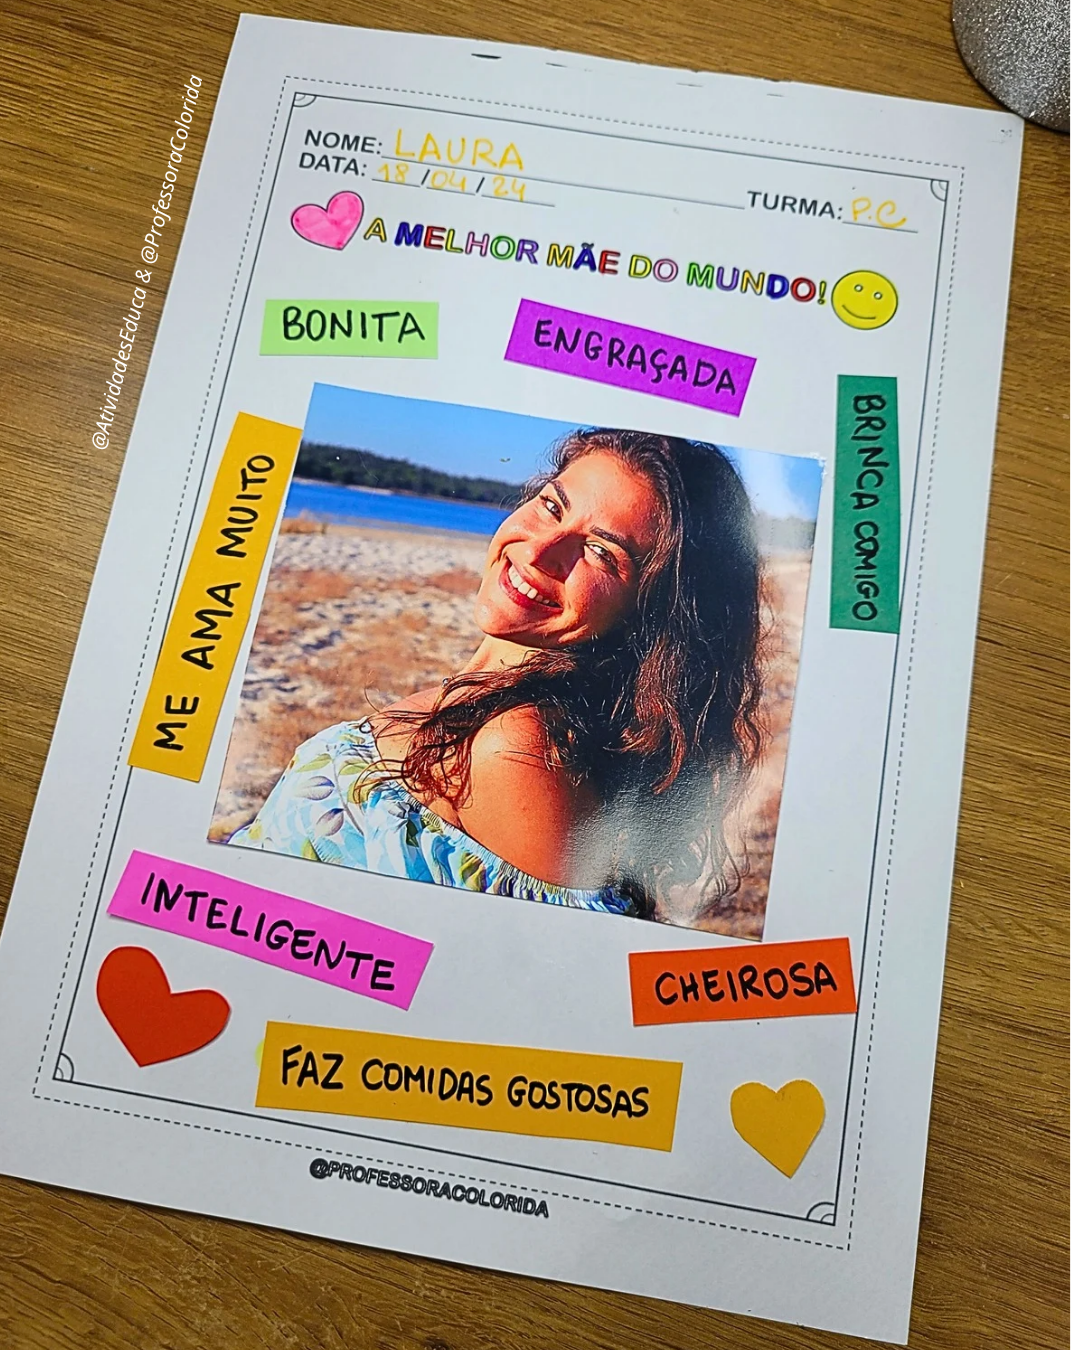 @AtividadesEduca & @ProfessoraColorida
NOME: LAURA
DATA: 18/04/24
TURMA: P.C
A MELHOR MÃE DO MUNDO!
BONITA
ENGRAÇADA
BRINCA COMIGO
ME AMA MUITO
INTELIGENTE
CHEIROSA
FAZ COMIDAS GOSTOSAS
@PROFESSORACOLORIDA